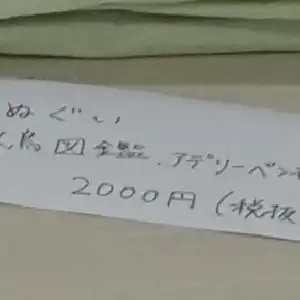 ぬぐい
鳥図鑑.アデリーペン
2000円(税抜